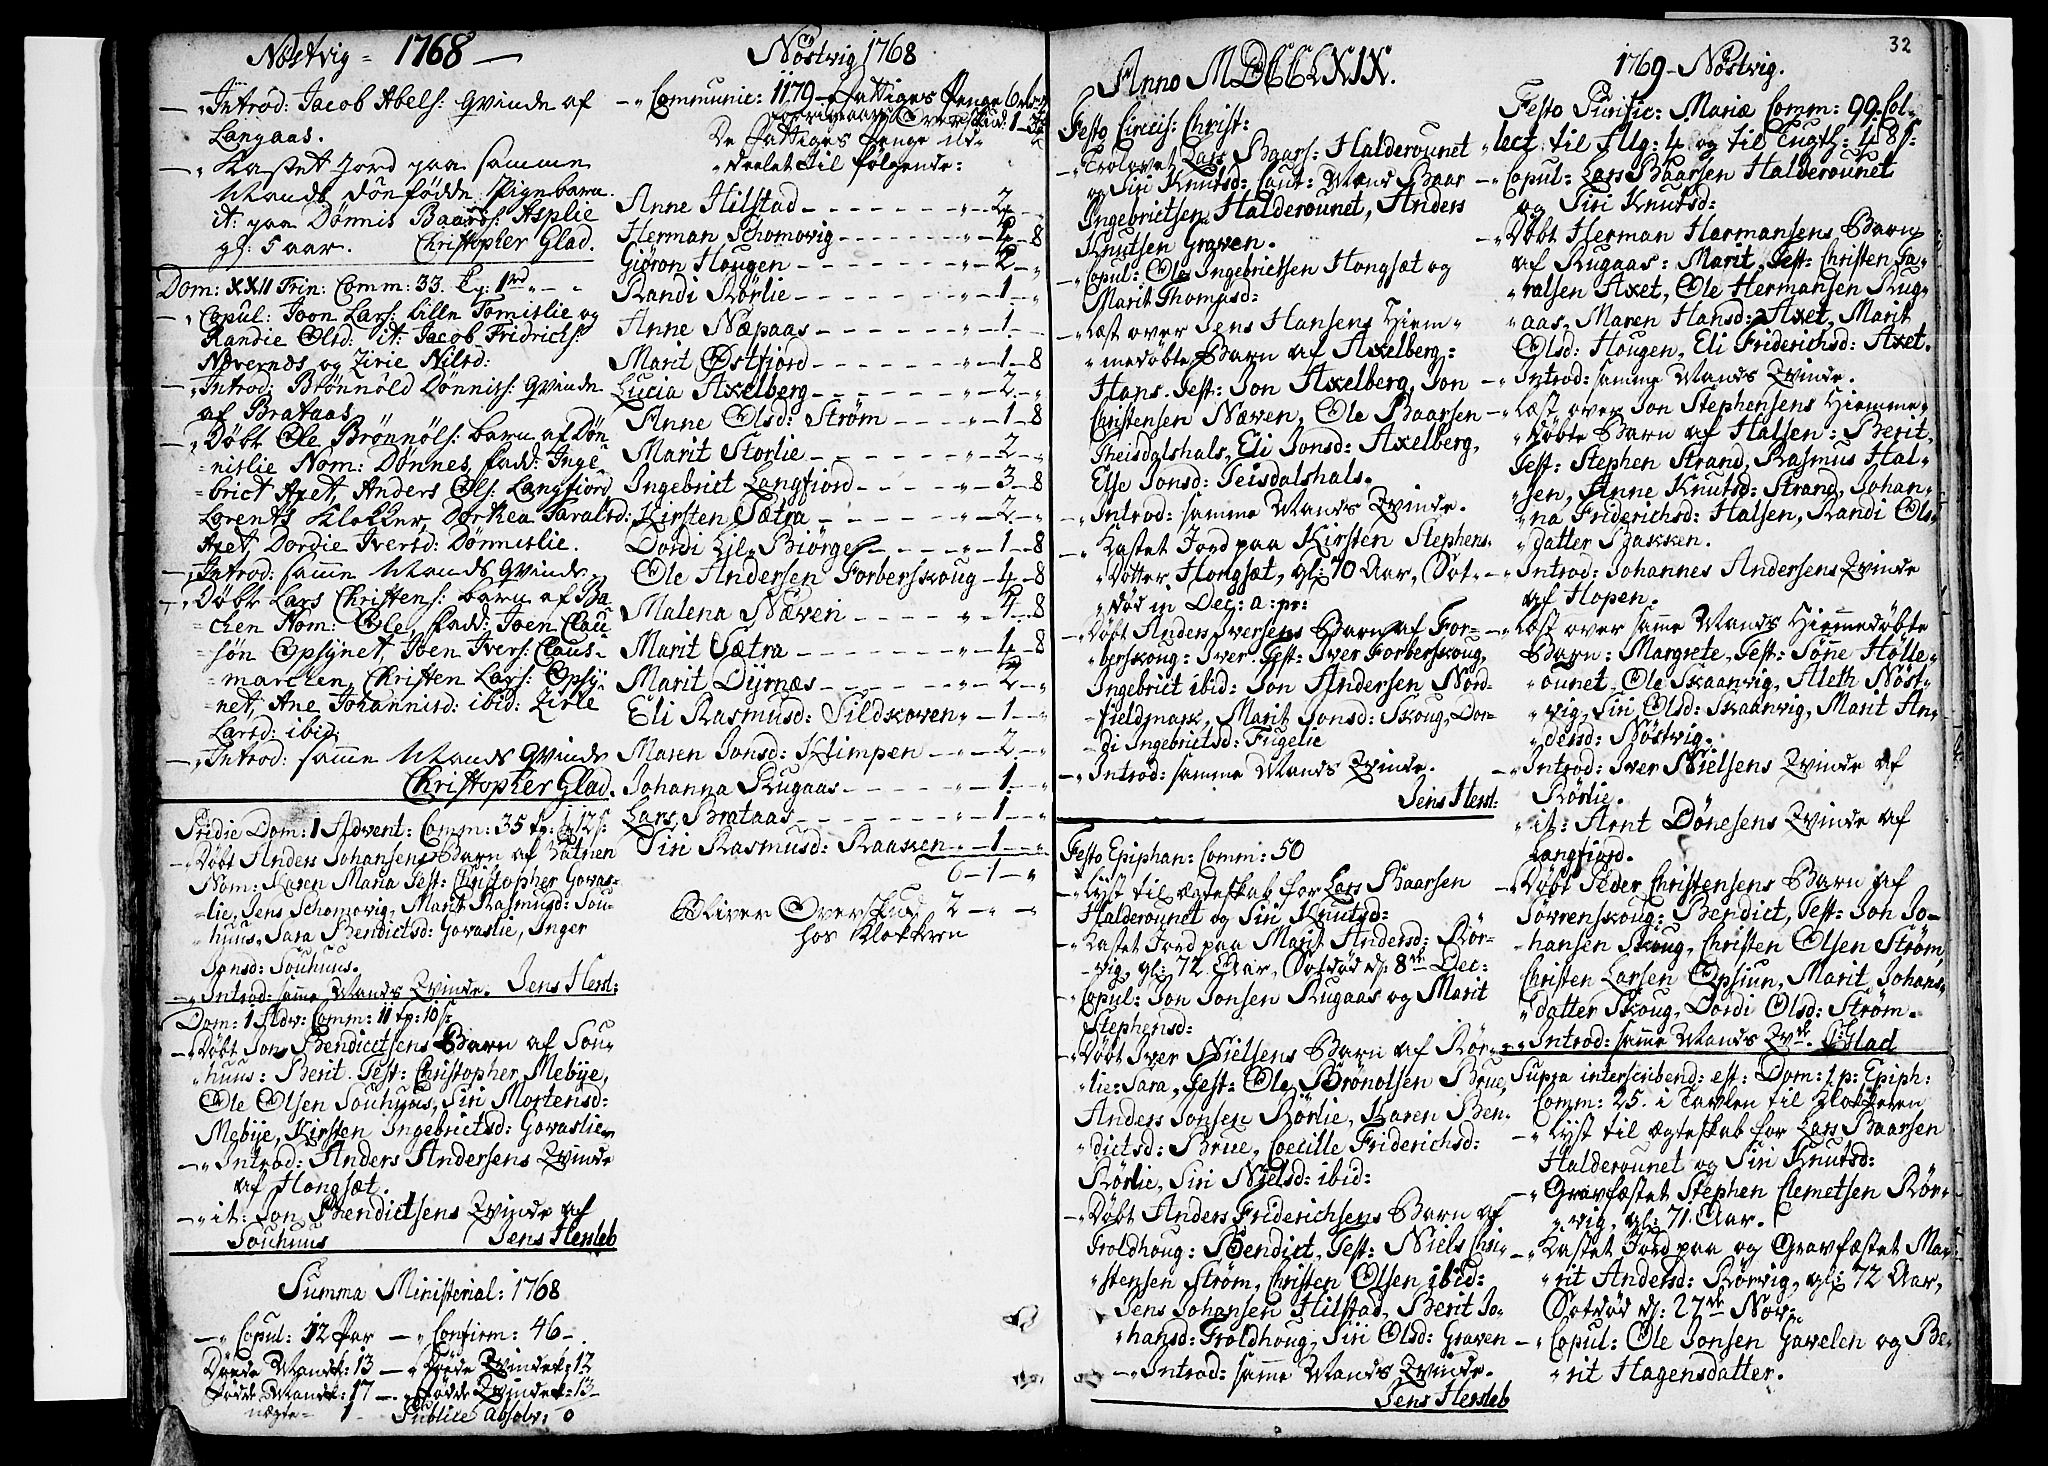 Nöstvig = 1768 —
— „ Introd: Jacob Abels: Qvinde af
Langaas.
— „ Kastet Jord paa samme
Mands dönfödde Pigebarn.
it: paa Dönnis Baards: Asplie
gl: 5 aar. Christopher Glad.
Dom: XXII Trin: Comm: 33. Tp: 1rd „ - „
— „ Copul: Joon Lars: Lille Tomislie og
Randie Olsd: it: Jacob Fridrichs:
Nævernes og Zirie Nilsd:
— „ Introd: Brönnöld Dönnis: Qvinde
af Brataas.
— „ Döbt Ole Brönnöls: barn af Dön
= nislie Nom: Dönnes, fadd: Inge
= brict Axet, Anders Ols: Langfiord
Lorents Klokker, Dorthea Taralsd:
Axet, Dordie Iversd: Dönnislie.
— „ Introd: samme Mands Qvinde.
— „ Döbt Lars Christens: barn af Ba
chen Nom: Ole, fadd: Joen Clau
sön Opsÿnet, Joen Ivers: Claus-
= marchen, Christen Lars: Opsÿ
net, Ane Johannisd: ibid: Zirle
Larsd: ibid:
— „ Introd: samme Mands Qvinde
Christopher Glad.
Pridie Dom: 1 Advent: Comm: 35 Tp: 4 12 s:
— „ Döbt Anders Johansens Barn af Vatnen
Nom: Karen Maria Test: Christopher Govas-
- lie, Jens Schomovig, Marit Rasmusd: Sou-
„ huus, Sara Bendictsd: Govaslie, Inger
Jonsd: Souhuus.
— „ Introd: samme Mands Qvinde. Jens Hersl:
Dom: 1 Adv: Comm: 11 tp: 10 s:
— „ Döbt Jon Bendictsens Barn af Sou-
„ huus: Berit. Test: Christopher Mebÿe,
Ole Olsen Souhuus, Siri Mortensd:
Mebÿe, Kirsten Ingebrictsd: Govaslie
— „ Introd: Anders Andersens Qvinde
af Hongsæt.
— „ it: Jon Bendictsens Qvinde af
Souhuus Jens Hersleb
Summa Ministerial: 1768
— „ Copul: 12 Par — „ Confirm: 46 —.
Döede Mandk: 13 — „ Döede Qvindek: 12
Födde Mandk: 17 — „ Födde Qvindek: 13
uægte - 1 Publice absolv: 0
Nöstvig 1768
— „ Communic: 1179 — Fattiges Penge
De Fattiges Penge ud-
„ deelet til fölgende:
Anne Hilstad - - - „ — 2 — „
Herman Schomovig - - - „ — 4 — 8
Giöron Hougen - - - „ — 2 — „
Randi Rörlie - - - „ — 1 — „
Anne Næpaas - - - „ — 1 — „
Marit Østfjord - - - „ — 1 — 8
Lucia Axelberg - - - „ — 2 — „
Anne Olsd: Ström - - - „ — 1 — 8
Marit Storlie - - - „ — 2 — „
Ingebrict Langfiord - - - „ — 3 — 8
Kirsten Sætra - - - „ — 2 — „
Dordi Lil Biörge - - - „ — 1 — 8
Ole Andersen Forberskoug — 4 — 8
Malena Næven - - - „ — 4 — 8
Marit Sætra - - - „ — 4 — 8
Marit Dÿrnæs - - - „ — 2 — „
Eli Rasmusd: Sildkoven „ — 1 — „
Maren Jonsd: Klimpen - - „ — 2 — „
Johanna Rugaas - - - „ — 1 — „
Lars Brataas - - - „ — 1 — „
Siri Rasmusd: Raaken - - „ — 1 — „
6 — 1 — „
Bliver Overskud 2 — „ — „
hos Klokkren
Anno MDCCLXIX.
Festo Circis: Christ:
— „ Trolovet Lars Baars: Halderounet
og Siri Knutsd: Caut: Mænd Baar
Ingebrictsen Halderounet, Anders
Knutsen Graven.
— „ Copul: Ole Ingebrictsen Hongsæt og
Marit Thomasd:
— „ Læst over Jens Hansens Hiem-
„ medöbte Barn af Axelberg:
Hans. Test: Jon Axelberg, Jon
Christensen Næven, Ole Baarsen
Theisdalshals, Eli Jonsd: Axelberg,
Else Jonsd: Teisdalshals.
— „ Introd: samme Mands Qvinde.
— „ Kastet Jord paa Kirsten Stephens-
„ Dotter Hongsæt, gl: 70 Aar, Sot-
„ död in Dec: a: pr:
— „ Döbt Anders Iversens Barn af For-
„ berskoug: Iver. Test: Iver Forberskoug,
Ingebrict ibid: Jon Andersen Nord-
- fieldmark, Marit Jonsd: Skoug, Dor-
- di Ingebrictsd: Fugelie
— „ Introd: samme Mands Qvinde.
Jens Hersl:
Festo Epiphan: Comm: 50
— „ Lÿst til ægteskab for Lars Baarsen
Halderounet og Siri Knutsd:
— „ Kastet Jord paa Marit Andersd: Rör-
- vig, gl: 72 Aar, Sotdöd d: 8de Dec:
— „ Copul: Jon Jonsen Rugaas og Marit
Stephensd:
— „ Döbt Iver Nielsens Barn af Rör-
„ lie: Sara, Test: Ole Brönolsen Brue,
Anders Jonsen Rörlie, Karen Ben-
„ dictsd: Brue, Coecille Friderichsd:
Rörlie, Siri Nielsd: ibid:
— „ Döbt Anders Friderichsens Barn af
Troldhoug: Bendict, Test: Niels Chri-
„ stensen Ström, Christen Olsen ibid:
Jens Johansen Hilstad, Berit Jo-
„ hansd: Troldhoug, Siri Olsd: Graven
— „ Introd: samme Mands Qvinde.
Jens Hersleb
32
1769 — Nöstvig.
Festo Purific: Mariæ Comm: 99. Col-
„ lect til Illg: 4 og til Tugth: 4 8 s:
— „ Copul: Lars Baarsen Halderounet
og Siri Knutsd:
— „ Döbt Herman Harmansens Barn
af Rugaas: Marit, Test: Christen Ta-
„ ralsen Axet, Ole Hermansen Rug-
„ aas, Maren Hansd: Axet, Marit
Olsd: Hougen, Eli Friderichsd: Axet.
— „ Introd: samme Mands Qvinde.
— „ Læst over Jon Stephensens Hiemme-
„ döbte Barn af Halsen: Berit,
Test: Stephen Strand, Rasmus Hal-
„ sen, Anne Knutsd: Strand, Johan-
„ na Friderichsd: Halsen, Randi Ols-
„ datter Bakken.
— „ Introd: Johannes Andersens Qvinde
af Hopen.
— „ Læst over samme Mands Hiemmedöbte
Barn: Margrete, Test: Sönne Hölle-
„ ounet, Ole Skaanvig, Aleth Nöst-
„ vig, Siri Olsd: Skaanvig, Marit An-
„ dersd: Nöstvig.
— „ Introd: Iver Nielsens Qvinde af
Rörlie.
„ it: Arnt Dönesens Qvinde af
Langfiord.
— „ Döbt Peder Christensens Barn af
Törrenskoug: Bendict, Test: Jon Jo-
- hansen Skoug, Christen Olsen Ström,
Christen Larsen Opsiun, Marit Johans-
„ datter Skoug, Dordi Olsd: Ström.
— „ Introd: samme Mands Qv: CGlad
Supra interscribend: est: Dom: 1 p: Epiph:
Comm: 25. i Tavlen til Klokkeren
— „ Lÿst til ægteskab for Lars Baarsen
Halderounet og Siri Knutsd:
— „ Gravfæstet Stephen Clemetsen Rör-
„ vig, gl: 71 Aar.
— „ Kastet Jord paa og Gravfæstet Ma-
„ rit Andersd: Rörvig, gl: 72 Aar,
Sotdöd d: 27de Nov:
— „ Copul: Ole Jonsen Gavelen og Be-
„ rit Hagensdatter.